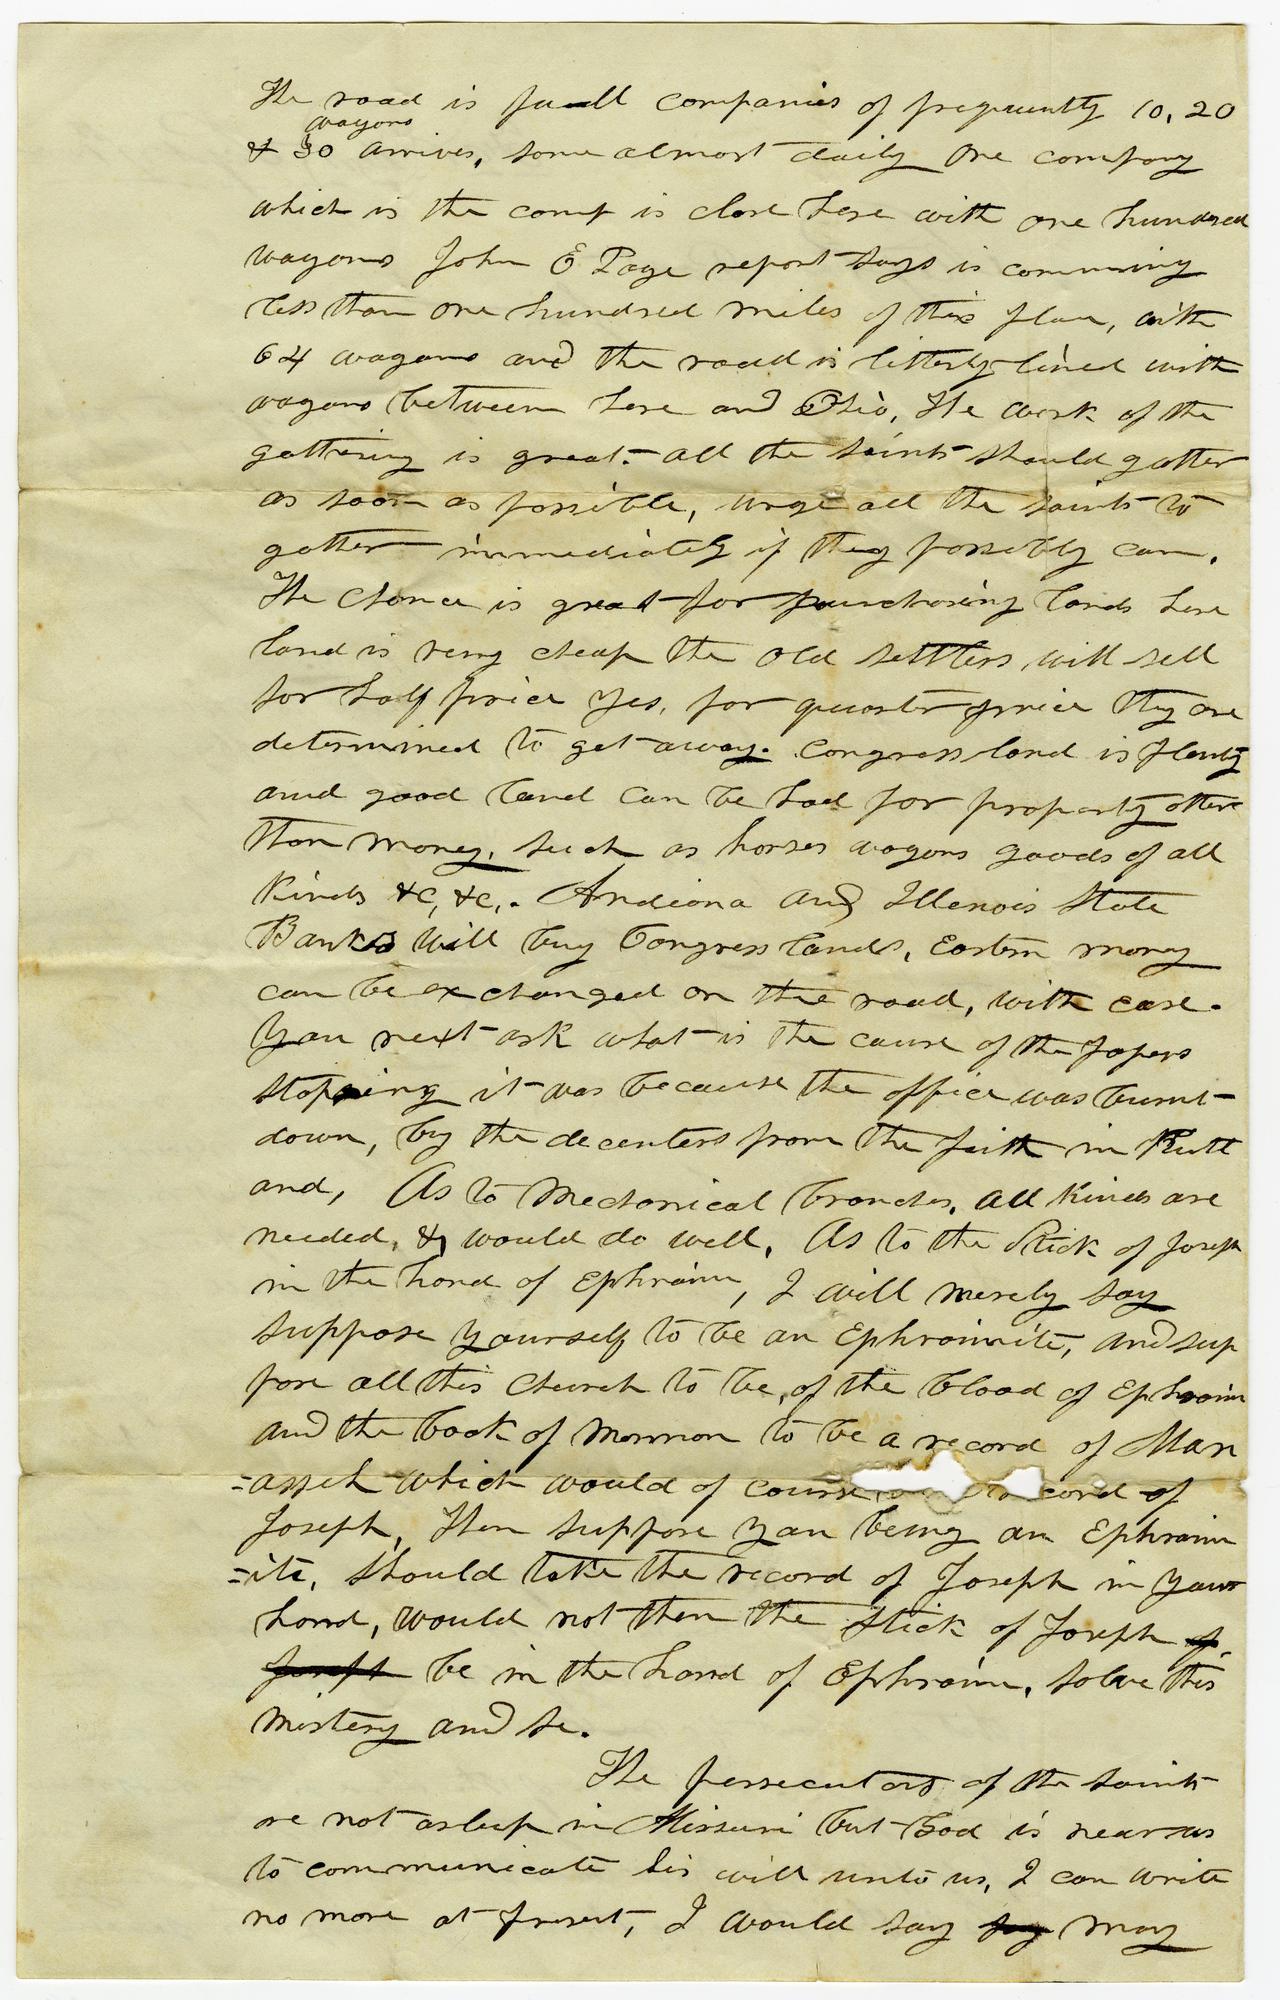 The road is full companies of frequently 10, 20
wagons
& 30 arrives, some almost daily One company
which is the camp is close here with one hundred
wagons John E Page report says is comming
less than one hundred miles of this place, with
64 wagons and the road is litterly lined with
wagons between here and Ohio, The work of the
gathering is great. all the saints should gather
as soon as possible, urge all the saints to
gather immediately if they possibly can.
The chance is great for purchasing lands here
land is very cheap the old settlers will sell
for half price yes, for quarter price they are
determined to get away. Congress land is plenty
and good land can be had for property other
than money, such as horses wagons goods of all
kinds &c, &c,. Indiana and Illenois State
Banks will buy Congress lands, Eastern money
can be exchanged on the road, with ease.
You next ask what is the cause of the papers
stopping it was because the office was burnt
down, by the decenters from the faith in Kirtl
and, As to Mechanical branches, all kinds are
needed, & would do well, As to the Stick of Joseph
in the hand of Ephraim, I will merely say
suppose yourself to be an Ephraimite, and sup
pose all this church to be, of the blood of Ephraim
and the book of Mormon to be a record of Man
=asseh which would of course record of
Joseph, Then suppose you being an Ephraim
=ite, should take the record of Joseph in your
hand, would not then the stick of Joseph of
Joseph be in the hand of Ephraim, solve this
mistery and se.
The persecutors of the saints
are not asleep in Missuri but God is near us
to communicate his will unto us, I can write
no more at present, I would say say may